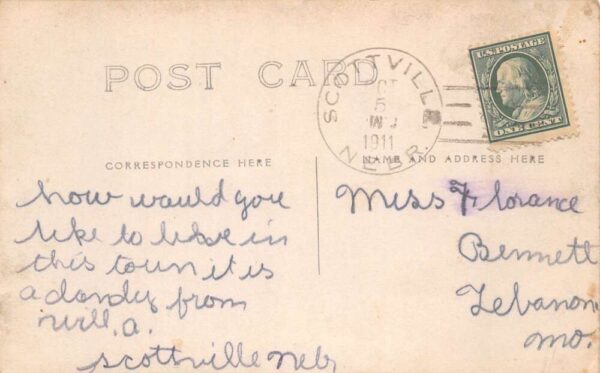 POST CARD
SCOTTVILLE
OCT
5
1911
NEBR.
U.S. POSTAGE
ONE CENT
CORRESPONDENCE HERE
NAME AND ADDRESS HERE
how would you
like to live in
this town it is
a dandy from
will. a.
scottville Nebr
Miss Florance
Bennett
Lebanon
Mo.